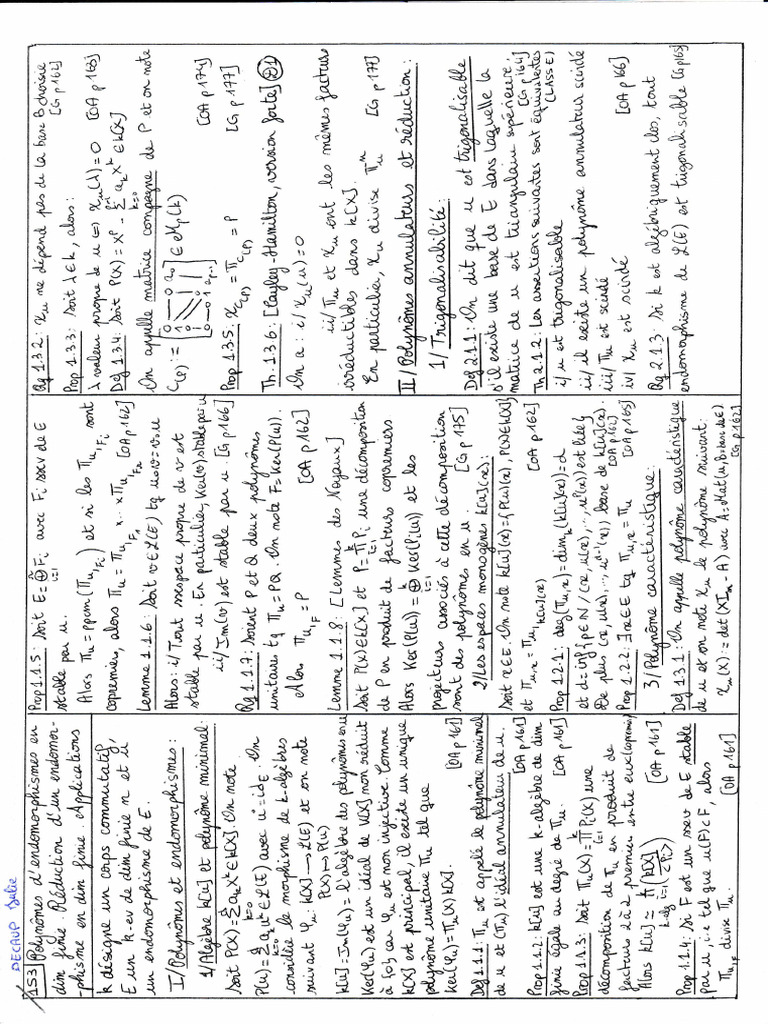 DECAUP Julie
153 Polynômes d'endomorphismes en
dim finie. Réduction d'un endomor-
phisme en dim finie. Applications
k désigne un corps commutatif,
E un k-ev de dim finie n et u
un endomorphisme de E.
I/ Polynômes et endomorphismes:
1/ Algèbre k[u] et polynôme minimal:
Soit P(X)=∑ a_k X^k ∈ k[X]. On note
P(u)=∑ a_k u^k ∈ L(E) avec u°=id_E. On
considère le morphisme de k-algèbres
suivant φ_u: k[X] → L(E) et on note
P(X) ↦ P(u)
k[u]:=Im(φ_u) = l'algèbre des polynômes en u
Ker(φ_u) est un idéal de k[X] non réduit
à {0} car φ_u est non injective. Comme
k[X] est principal, il existe un unique
polynôme unitaire Π_u tel que
Ker(φ_u)=Π_u(X)k[X]. [OA p 161]
Def 1.1.1: Π_u est appelé le polynôme minimal
de u et (Π_u) l'idéal annulateur de u. [OA p 161]
Prop 1.1.2: k[u] est une k-algèbre de dim
finie égale au degré de Π_u. [OA p 161]
Prop 1.1.3: Soit Π_u(X)=∏_{i=1}^k P_i(X) une
décomposition de Π_u en produit de
facteurs 2 à 2 premiers entre eux (copremiers)
Alors k[u] ≃_{k-alg} ∏_{i=1}^k (k[X]/<P_i>) [OA p 161]
Prop 1.1.4: Si F est un ssev de E stable
par u, i.e tel que u(F)⊂F, alors
Π_{u|F} divise Π_u. [OA p 161]
Prop 1.1.5: Soit E=⊕_{i=1}^n F_i avec F_i ssev de E
stable par u.
Alors Π_u=ppcm(Π_{u|F_i}) et si les Π_{u|F_i} sont
copremiers, alors Π_u = Π_{u|F_1} x...xΠ_{u|F_n} [OA p 162]
Lemme 1.1.6: Soit v∈L(E) tq u∘v=v∘u
Alors: i/ Tout ssespace propre de v est
stable par u. En particulier, Ker(v) stable par u
ii/ Im(v) est stable par u. [G p 166]
Rq 1.1.7: Soient P et Q deux polynômes
unitaires tq Π_u=PQ. On note F=Ker(P(u)).
Alors Π_{u|F}=P [OA p 162]
Lemme 1.1.8: [Lemmes des Noyaux]
Soit P(X)∈k[X] et P=∏_{i=1}^k P_i une décomposition
de P en produit de facteurs copremiers
Alors Ker(P(u))=⊕_{i=1}^k Ker(P_i(u)) et les
projecteurs associés à cette décomposition
sont des polynômes en u. [G p 175]
2/ Les espaces monogènes k[u](x):
Soit x∈E. On note k[u](x)={P(u)(x), P(X)∈k[X]}
et Π_{u,x}=Π_{u|k[u](x)} [OA p 162]
Prop 1.2.1: deg(Π_{u,x})=dim_k(k[u](x))=d
et d=inf{p∈ℕ/(x,u(x),...,u^p(x)) est liée}
De plus (x,u(x),...,u^{d-1}(x)) base de k[u](x). [OA p 162]
Prop 1.2.2: ∃x∈E tq Π_{u,x}=Π_u [OA p 165]
3/ Polynôme caractéristique:
Def 1.3.1: On appelle polynôme caractéristique
de u et on note χ_u le polynôme suivant:
χ_u(X):=det(XI_n-A) avec A=Mat(u,B=base de E) [G p 162]
Rq 1.3.2: χ_u ne dépend pas de la base B choisie [G p 162]
Prop 1.3.3: Soit λ∈k, alors:
λ valeur propre de u ⟺ χ_u(λ)=0 [OA p 168]
Def 1.3.4: Soit P(X)=X^p - ∑_{k=0}^{p-1} a_k X^k ∈ k[X]
On appelle matrice compagne de P et on note
C(P):= [0 ... 0 a_0 1 ... 0 1 a_{p-1}] ∈ M_p(k) [OA p 174]
Prop 1.3.5: χ_{C(P)} = Π_{C(P)} = P [G p 177]
Th. 1.3.6: [Cayley-Hamilton, version forte] D1
On a: i/ χ_u(u)=0
ii/ Π_u et χ_u ont les mêmes facteurs
irréductibles dans k[X].
En particulier, χ_u divise Π_u^n [G p 177]
II/ Polynômes annulateurs et réduction:
1/ Trigonalisabilité:
Def 2.1.1: On dit que u est trigonalisable
s'il existe une base de E dans laquelle la
matrice de u est triangulaire supérieure. [G p 164]
Th 2.1.2: Les assertions suivantes sont équivalentes
i/ u est trigonalisable (CLASSE)
ii/ il existe un polynôme annulateur scindé
iii/ Π_u est scindé
iv/ χ_u est scindé [OA p 166]
Rq 2.1.3: Si k est algébriquement clos, tout
endomorphisme de L(E) est trigonalisable [G p 165]